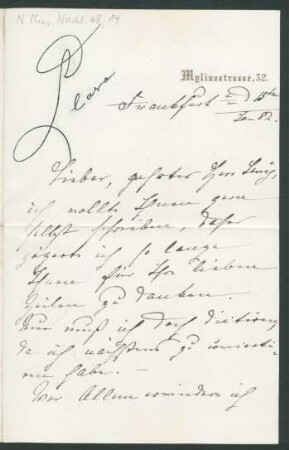 N. Mus. Nachl. 68, 14
Clara
Myliusstrasse, 32.
Frankfurt d 13te
Jan 82.
Lieber, geehrter Herr
ich wollte Ihnen gern
selbst schreiben, daher
zögerte ich so lange
Ihnen für Ihre lieben
Zeilen zu danken.
Nun muß ich doch dictiren,
da ich nächstens zu concerti-
ren habe.
Vor Allem erwiedere ich